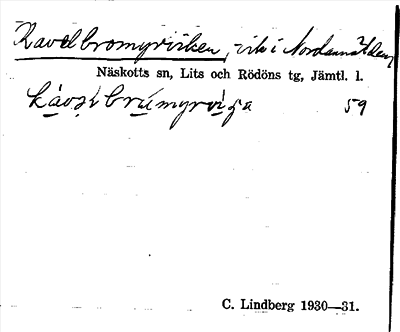 Kavelbromyrviken, vik i Nordannälden,
Näskotts sn, Lits och Rödöns tg, Jämtl. l.
59
C. Lindberg 1930—31.